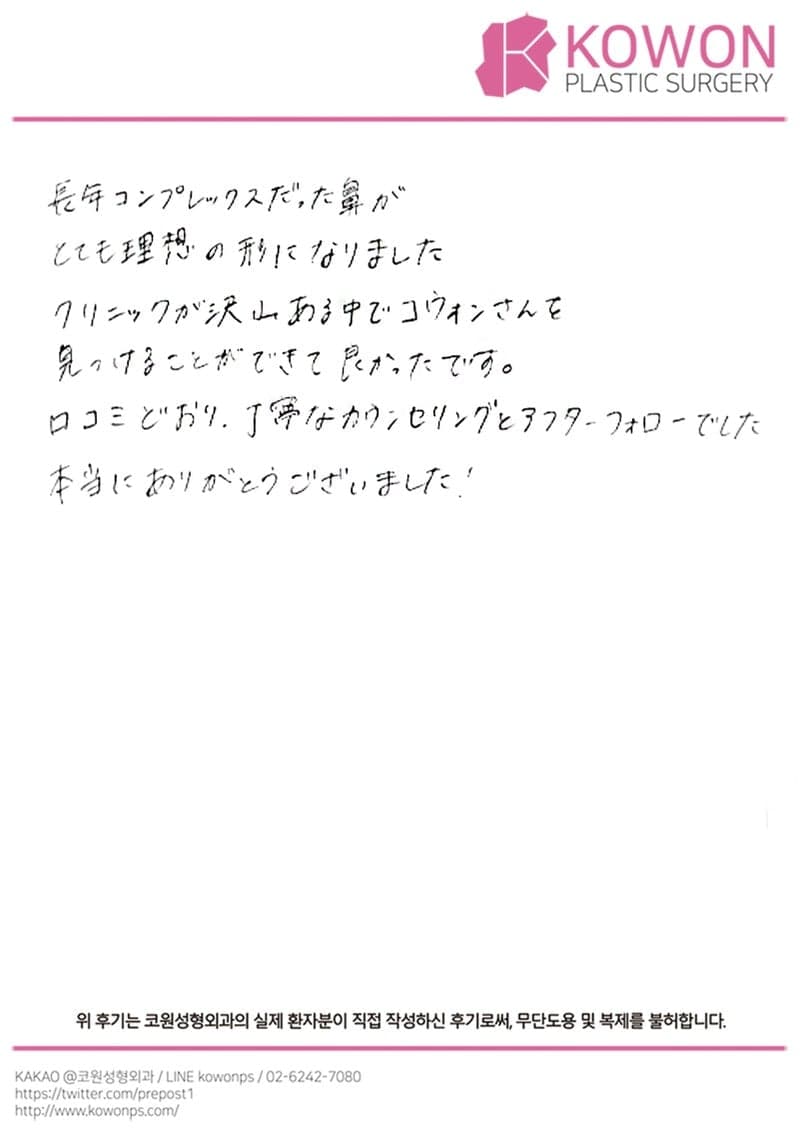 KOWON
PLASTIC SURGERY
長年コンプレックスだった鼻が
とても理想の形になりました
クリニックが沢山ある中でコウォンさんを
見つけることができて良かったです。
口コミどおり、丁寧なカウンセリングとアフターフォローでした
本当にありがとうございました!
위 후기는 코원성형외과의 실제 환자분이 직접 작성하신 후기로써, 무단도용 및 복제를 불허합니다.
KAKAO @코원성형외과 / LINE kowonps / 02-6242-7080
https://twitter.com/prepost1
http://www.kowonps.com/